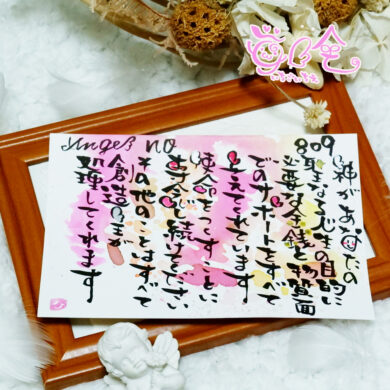 Angel no
809
神があなたの
聖なる人生の目的に
必要な金銭と物質面
でのサポートをすべて
与えてくれています
使命をつくすことに
専念し続けてください
その他のことはすべて
創造主が
処理してくれます